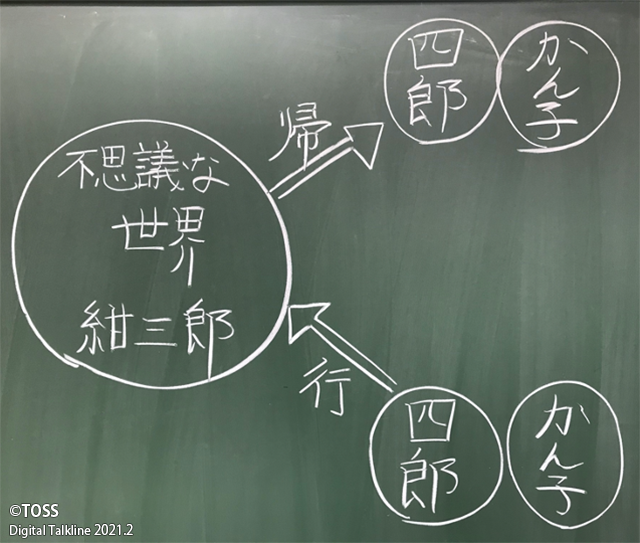 四郎
かん子
帰
不思議な
世界
紺三郎
行
四郎
かん子
©TOSS
Digital Talkline 2021.2